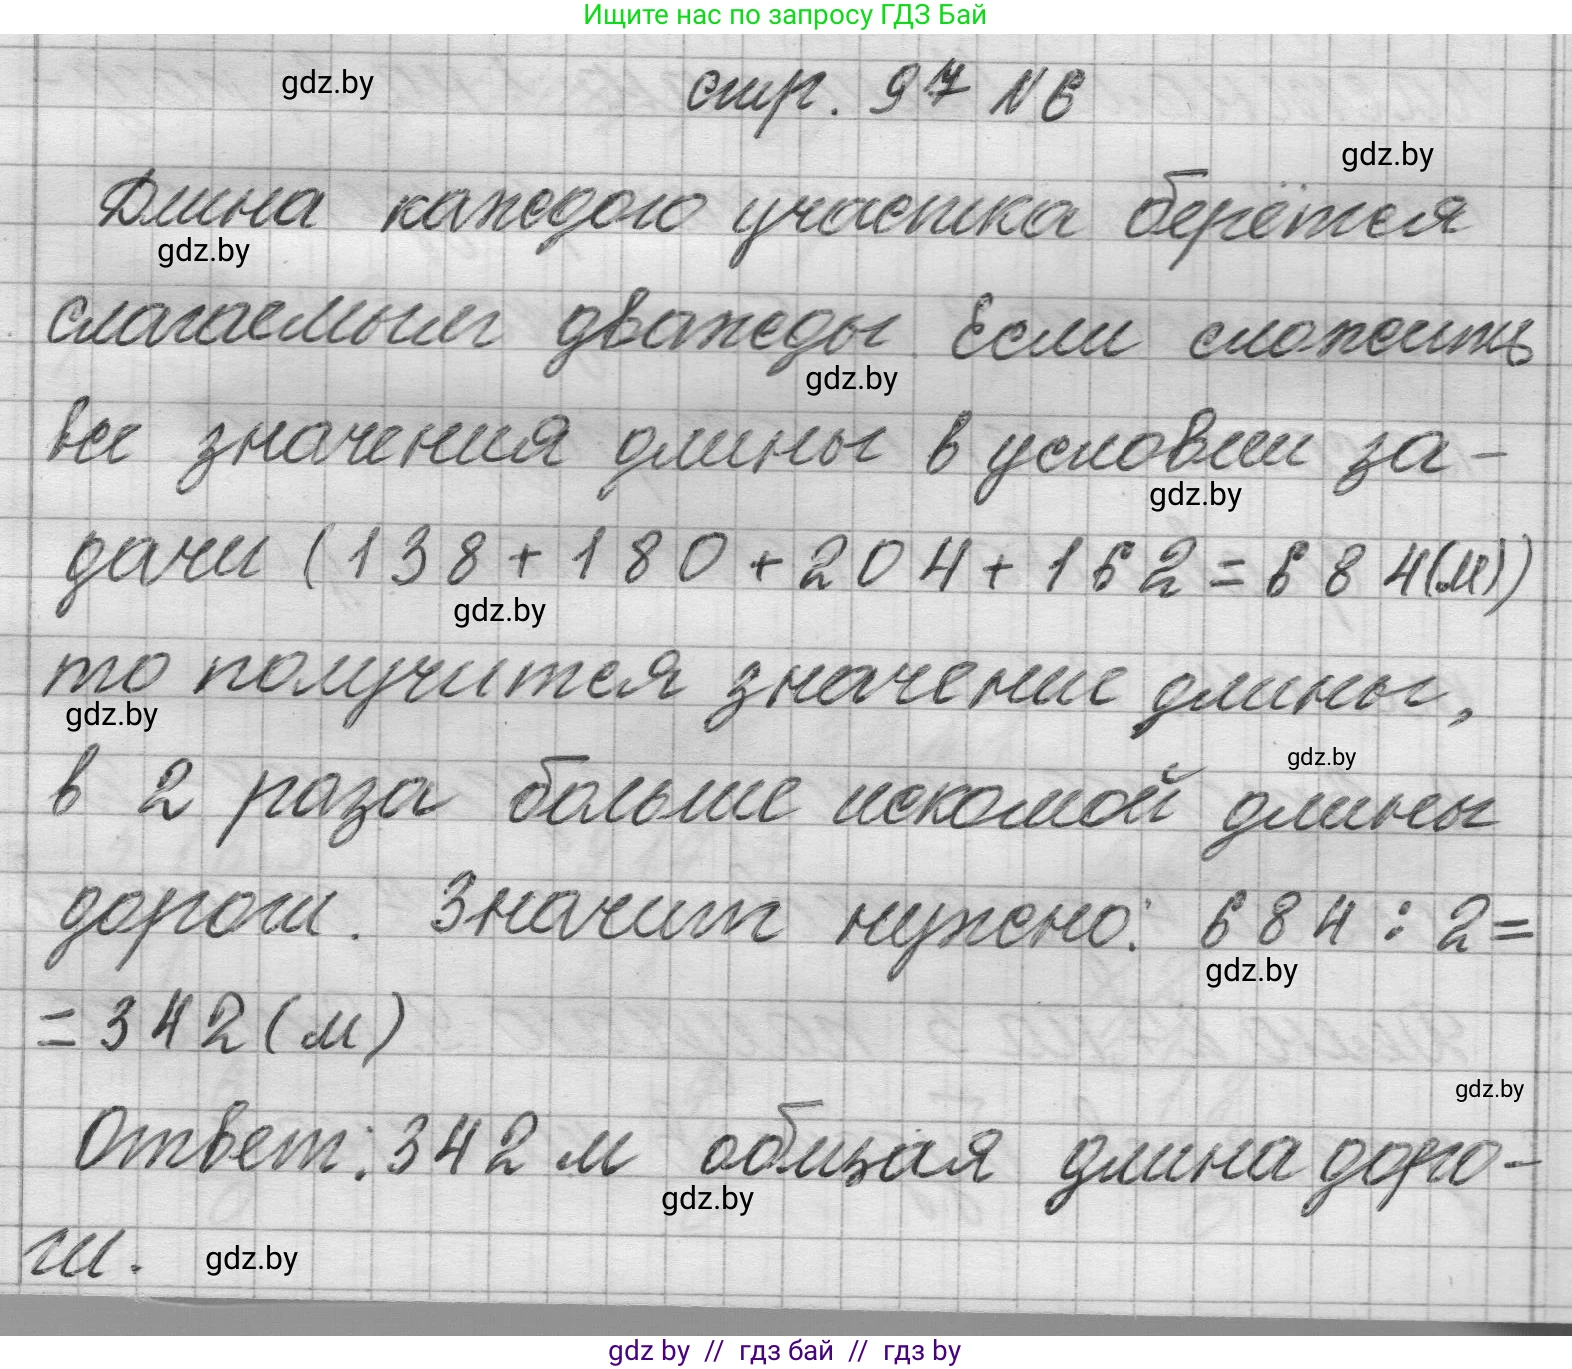 Ищите нас по запросу ГДЗ Бай
gdz.by
стр. 97 N 6
gdz.by
Длина каждого участка берётся
gdz.by
слагаемым дважды. Если сложить
gdz.by
все значения длины в условии за-
gdz.by
дачи (138+180+204+162=684(м))
gdz.by
то получится значение длины,
gdz.by
gdz.by
в 2 раза больше искомой длины
дороги. Значит нужно: 684:2=
gdz.by
=342(м)
gdz.by
Ответ: 342 м общая длина доро-
gdz.by
ги.
gdz.by
gdz.by // гдз бай // гдз by